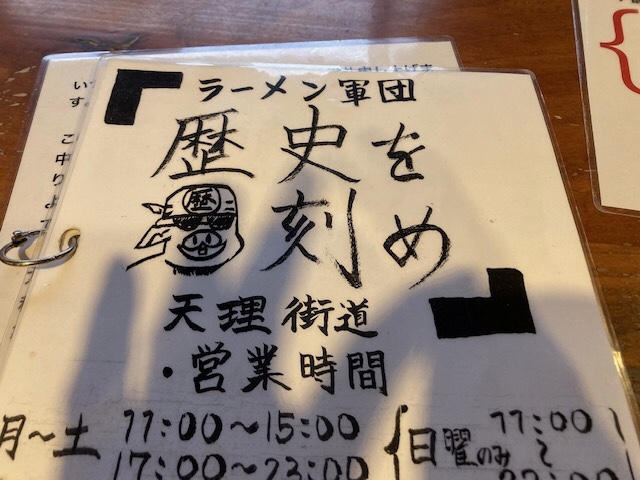 ラーメン軍団
『歴史を
歴
刻め』
天理街道
・営業時間
月〜土 11:00〜15:00
17:00〜23:00
日曜のみ 11:00
〜